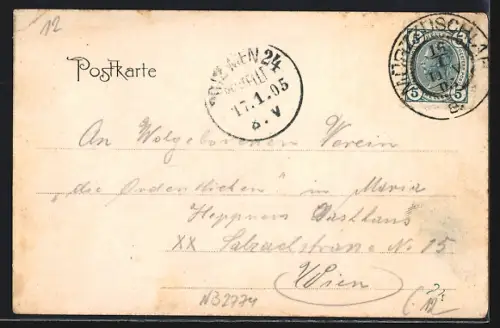 12
Postkarte
24
17.1.05
8. V
MÜRZZUSCHLAG
5 5
An Wolgeborenen Verein
„die Ordentlichen" in Maria
Heppners Gasthaus
XX Salzachstrasse No 15
Wien
NB2774
12